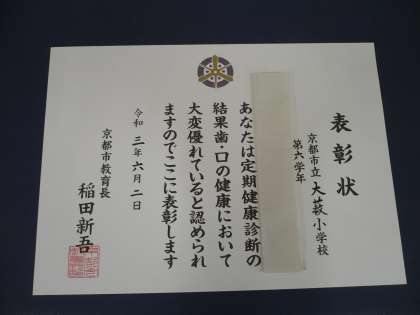 表彰状
京都市立大萩小学校
第六学年
あなたは定期健康診断の
結果歯・口の健康において
大変優れていると認められ
ますのでここに表彰します
令和三年六月二日
京都市教育長
稲田新吾